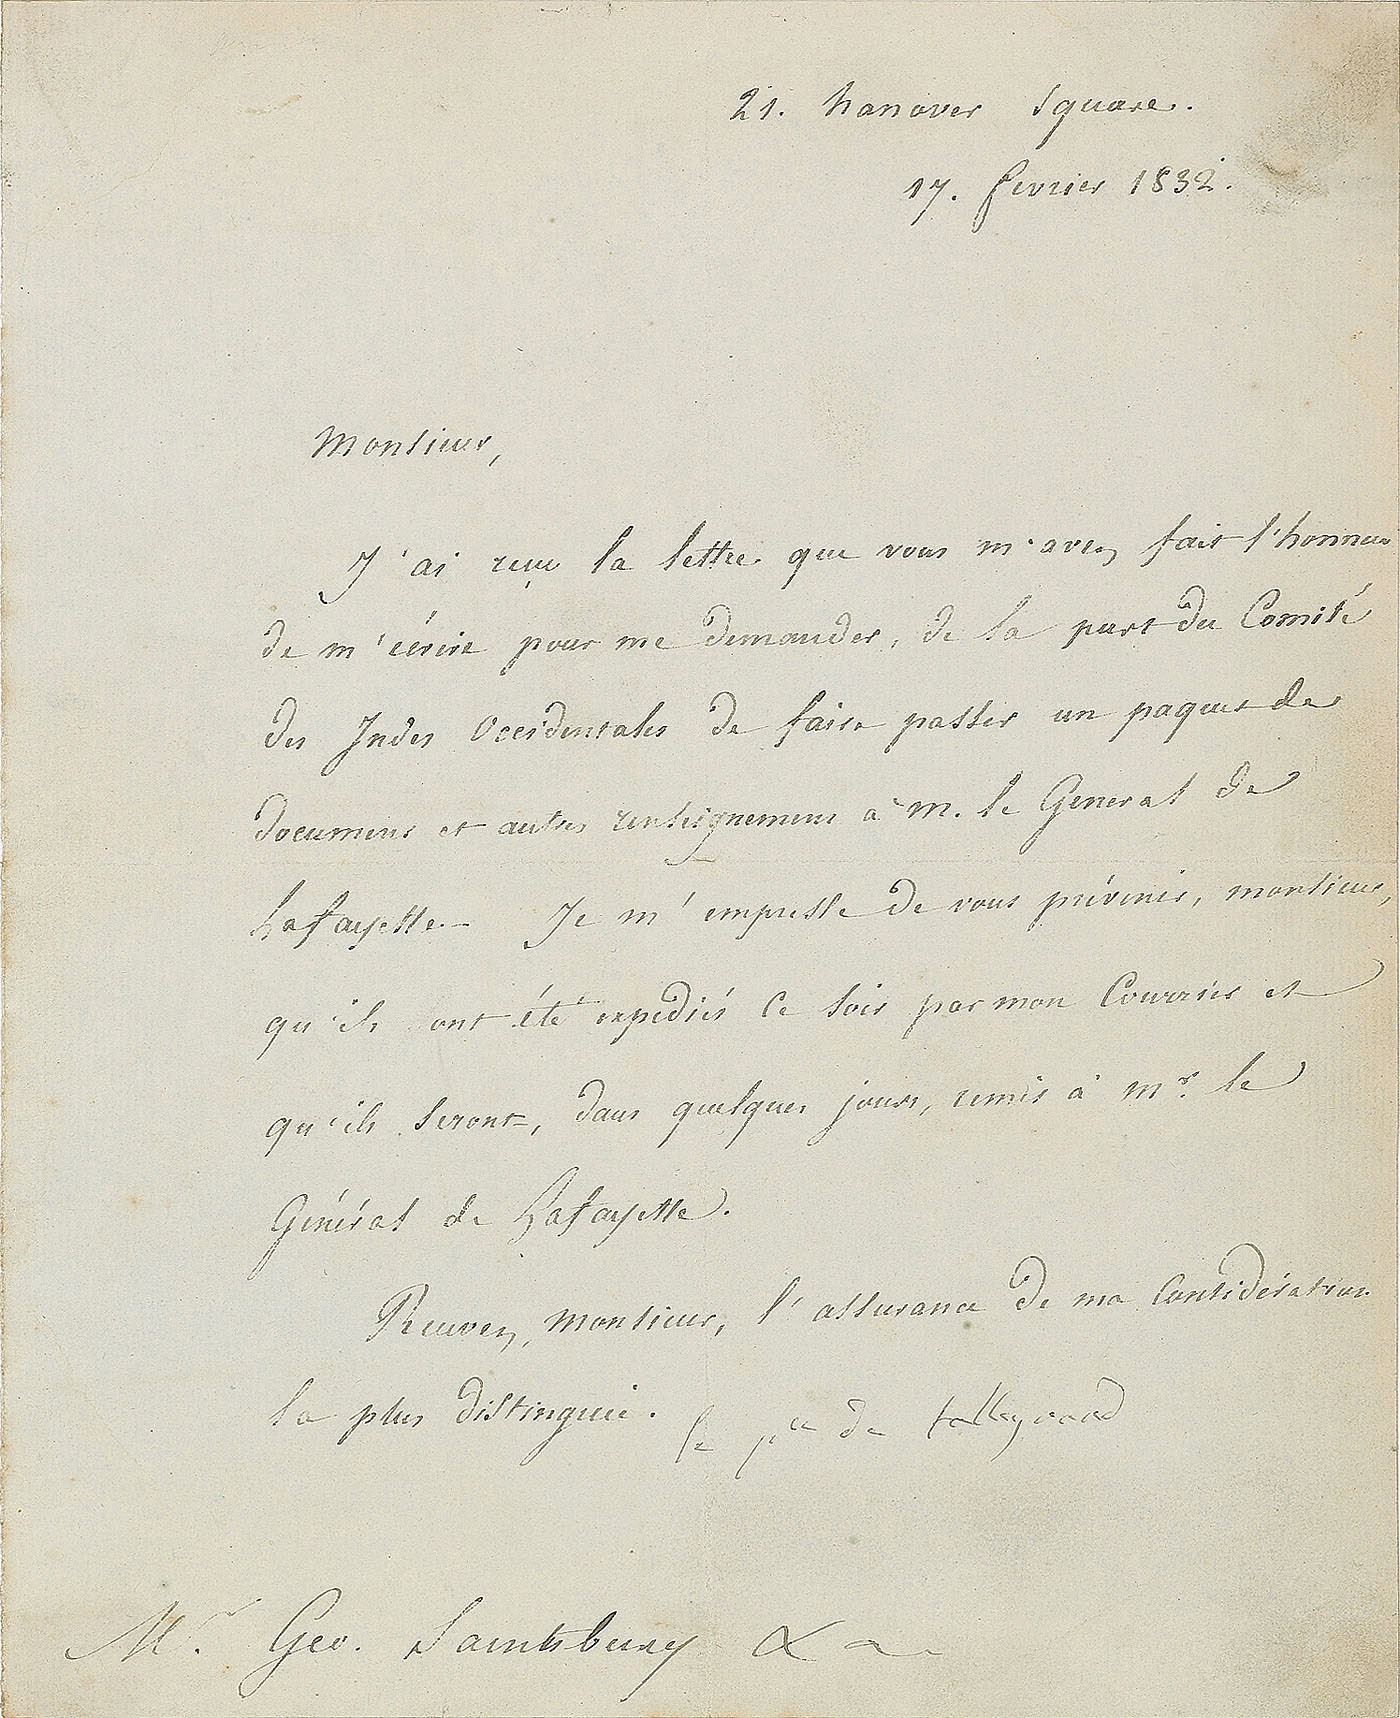 21. hanover Square.
17. fevrier 1832.
Monsieur,
J'ai reçu la lettre que vous m'avez fait l'honneur
de m'écrire pour me demander, de la part du Comité
des Indes Occidentales de faire passer un paquet de
documens et autres renseignemens à M. le General de
Lafayette. – Je m'empresse de vous prévenir, monsieur,
qu'ils ont été expédiés ce soir par mon Courrier et
qu'ils seront, dans quelques jours, remis à Mr. le
Général de Lafayette.
Recevez, Monsieur, l'assurance de ma Considération
la plus distinguée.
le pce de talleyrand
Mr. Geo. Saintsbury